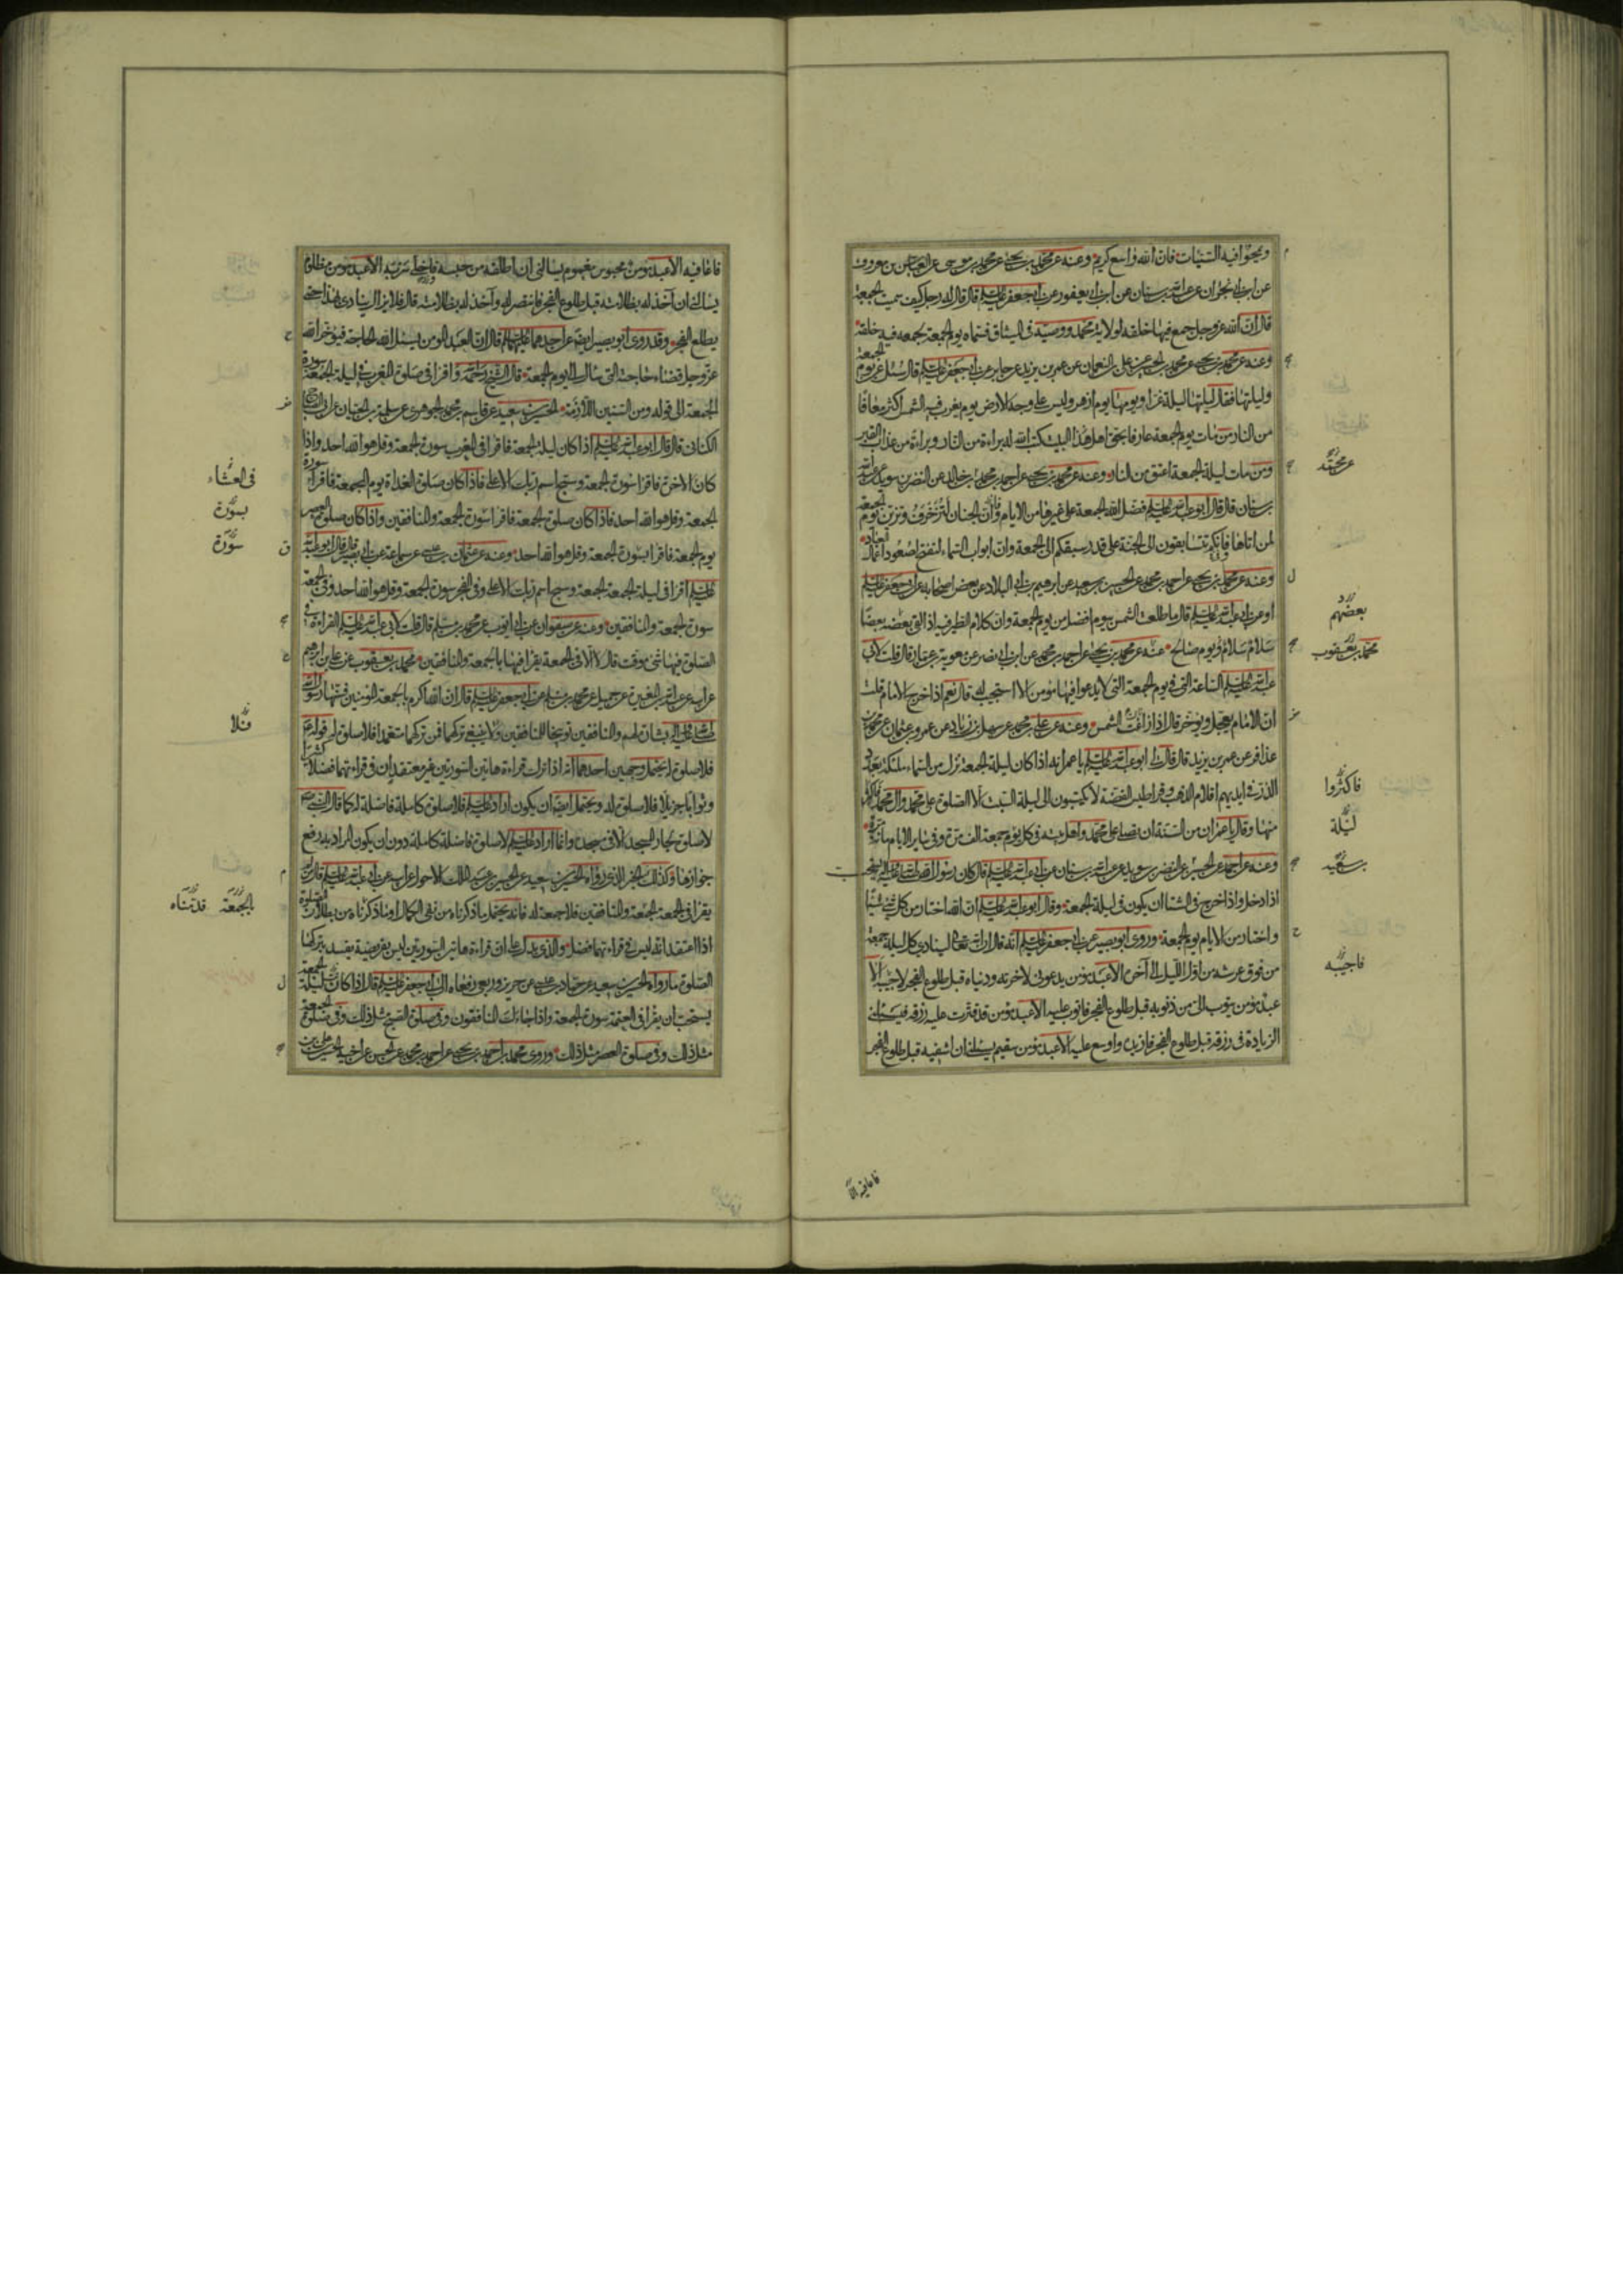 ويمحوا فيه السيئات فان الله واسع كريم وعنه عن محمد بن يحيى عن محمد بن موسى عن العباس بن معروف
عن ابن ابي نجران عن عبد الله بن سنان عن ابن ابي يعفور عن ابي جعفر عليه السلم قال قال له رجل كيف سميت الجمعة
قال ان الله عز وجل جمع فيها خلقه لولاية محمد ووصيه في الميثاق فسماه يوم الجمعة لجمعه فيه خلقه
وعنه عن محمد بن يحيى عن محمد بن الحسين عن علي بن النعمان عن عمر بن يزيد عن جابر عن ابي جعفر عليه السلم قال سئل عن يوم الجمعة
وليلتها فقال ليلتها ليلة غراء ويومها يوم ازهر وليس على وجه الارض يوم يغرب فيه الشمس اكثر معافا
من النار من مات يوم الجمعة عارفا بحق اهل هذا البيت كتب الله له براءة من النار وبراءة من عذاب القبر
ومن مات ليلة الجمعة اعتق من النار وعنه عن محمد بن يحيى عن احمد بن محمد بن خالد عن النضر بن سويد عن عبد الله
بن سنان قال قال ابو عبد الله عليه السلم فضل الله الجمعة على غيرها من الايام وان الجنان لتزخرف وتزين يوم الجمعة
لمن اتاها فانكم تتسابقون الى الجنة على قدر سبقكم الى الجمعة وان ابواب السماء لتفتح لصعود اعمال العباد
وعنه عن محمد بن يحيى عن احمد بن محمد عن الحسين بن سعيد عن ابرهيم بن ابي البلاد عن بعض اصحابه عن ابي جعفر عليه السلم
او عن ابي عبد الله عليه السلم قال ما طلعت الشمس بيوم افضل من يوم الجمعة وان كلام الطير فيه اذا لقي بعضه بعضا
سلام سلام يوم صالح عنه عن محمد بن يحيى عن احمد بن محمد عن ابن ابي نصر عن معوية بن عمار قال قلت لابي
عبد الله عليه السلم الساعة التي في يوم الجمعة التي لا يدعوا فيها مؤمن الا استجيب له قال نعم اذا خرج الامام قلت
ان الامام يعجل ويؤخر قال اذا زاغت الشمس وعنه عن علي بن محمد عن سهل بن زياد عن عمرو بن عثمان عن محمد بن
عذافر عن عمر بن يزيد قال قال لي ابو عبد الله عليه السلم يا عمر انه اذا كان ليلة الجمعة نزل من السماء ملئكة بعدد
الذر في ايديهم اقلام الذهب وقراطيس الفضة لا يكتبون الى ليلة السبت الا الصلوة على محمد وال محمد فاكثر
منها وقال يا عمر ان من السنة ان يصلي على محمد واهل بيته في كل يوم جمعة الف مرة وفي ساير الايام مائة مرة
وعنه عن احمد عن الحسين عن النضر بن سويد عن عبد الله بن سنان عن ابي عبد الله عليه السلم قال كان رسول الله صلى الله عليه واله يستحب
اذا دخل واذا خرج في الشتا ان يكون في ليلة الجمعة وقال ابو عبد الله عليه السلم ان الله اختار من كل شيء شيئا
واختار من الايام يوم الجمعة وروى ابو بصير عن ابي جعفر عليه السلم انه قال ان الله تعالى لينادي كل ليلة جمعة
من فوق عرشه من اول الليل الى آخره الا عبد مؤمن يدعوني لاخرته ودنياه قبل طلوع الفجر لاجيبه الا
عبد مؤمن يتوب الي من ذنوبه قبل طلوع الفجر فاتوب عليه الا عبد مؤمن قد قترت عليه رزقه فيسئلني
الزيادة في رزقه قبل طلوع الفجر فازيده واوسع عليه الا عبد مؤمن سقيم يسئلني ان اشفيه قبل طلوع الفجر
عن محمد
بعضهم
محمد بن يعقوب
فاكثروا
ليلة
بن سعيد
فاجيبه
فاعافيه الا
فاعافيه الا عبد مؤمن محبوس مغموم يسالني ان اطلقه من حبسه واخلي سربه الا عبد مؤمن مظلوم
يسالني ان آخذ له بظلامته قبل طلوع الفجر فانتصر له وآخذ له بظلامته قال فلا يزال ينادي بهذا حتى
يطلع الفجر وقد روى ابو بصير ايضا عن احدهما عليهما السلم قال ان العبد المؤمن يسئل الله الحاجة فيؤخر الله
عز وجل قضاء حاجته التي سال الى يوم الجمعة قال الشيخ رحمه الله واقرا في صلوة المغرب في ليلة الجمعة سورة
الجمعة الى قوله ومن السنن اللازمة الحسين بن سعيد عن قاسم بن محمد الجوهري عن سلمة بن حيان عن ابي الصباح
الكناني قال قال ابو عبد الله عليه السلم اذا كان ليلة الجمعة فاقرا في المغرب سورة الجمعة وقل هو الله احد واذا
كان الاخرة فاقرا سورة الجمعة وسبح اسم ربك الاعلى فاذا كان صلوة الغداة يوم الجمعة فاقرا سورة
الجمعة وقل هو الله احد فاذا كان صلوة الجمعة فاقرا سورة الجمعة والمنافقين واذا كان صلوة العصر
يوم الجمعة فاقرا بسورة الجمعة وقل هو الله احد وعنه عن عثمان بن عيسى عن سماعة عن ابي بصير قال قال ابو عبد الله
عليه السلم اقرا في ليلة الجمعة الجمعة وسبح اسم ربك الاعلى وفي الفجر سورة الجمعة وقل هو الله احد وفي الجمعة
سورة الجمعة والمنافقين وعنه عن صفوان عن ابي ايوب عن محمد بن مسلم قال قلت لابي عبد الله عليه السلم القراءة في
الصلوة فيها شئ موقت قال لا الا في الجمعة يقرا فيها بالجمعة والمنافقين محمد بن يعقوب عن علي بن ابرهيم
عن ابيه عن عبد الله بن المغيرة عن جميل عن محمد بن مسلم عن ابي جعفر عليه السلم قال ان الله اكرم بالجمعة المؤمنين فسنها رسول الله
صلى الله عليه واله بشارة لهم والمنافقين توبيخا للمنافقين ولا ينبغي تركهما فمن تركهما متعمدا فلا صلوة له قوله عم
فلا صلوة له يحتمل وجهين احدهما انه اذا ترك قراءة هاتين السورتين غير معتقد ان في قراءتهما فضلا كثيرا
وثوابا جزيلا فلا صلوة له ويحتمل ايضا ان يكون اراد عليه السلم فلا صلوة كاملة فاضلة له كما قال النبي ص
لا صلوة لجار المسجد الا في مسجده وانما اراد عليه السلم لا صلوة فاضلة كاملة دون ان يكون المراد به رفع
جوازها وكذلك الخبر الذي رواه الحسين بن سعيد عن الحسين بن عبد الملك الاحول عن ابيه عن ابي عبد الله عليه السلم قال من لم
يقرا في الجمعة الجمعة والمنافقين فلا جمعة له فانه يحتمل ما ذكرناه من نفي الكمال او ما ذكرناه من بطلان الصلوة
اذا اعتقد انه ليس في قراءتهما فضل والذي يدل على ان قراءة هاتين السورتين ليس بفريضة يفسد بتركها
الصلوة ما رواه الحسين بن سعيد عن حماد بن عيسى عن حريز وربعي رفعاه الى ابي جعفر عليه السلم قال اذا كانت ليلة الجمعة
يستحب ان يقرا في العتمة سورة الجمعة واذا جاءك المنافقون وفي صلوة الصبح مثل ذلك وفي صلوة الجمعة
مثل ذلك وفي صلوة العصر مثل ذلك وروى محمد بن احمد بن يحيى عن احمد بن محمد عن الحسين عن اخيه الحسين عن علي بن
في العشاء
بسورة
سورة
فلا
بالجمعة قد بيناه